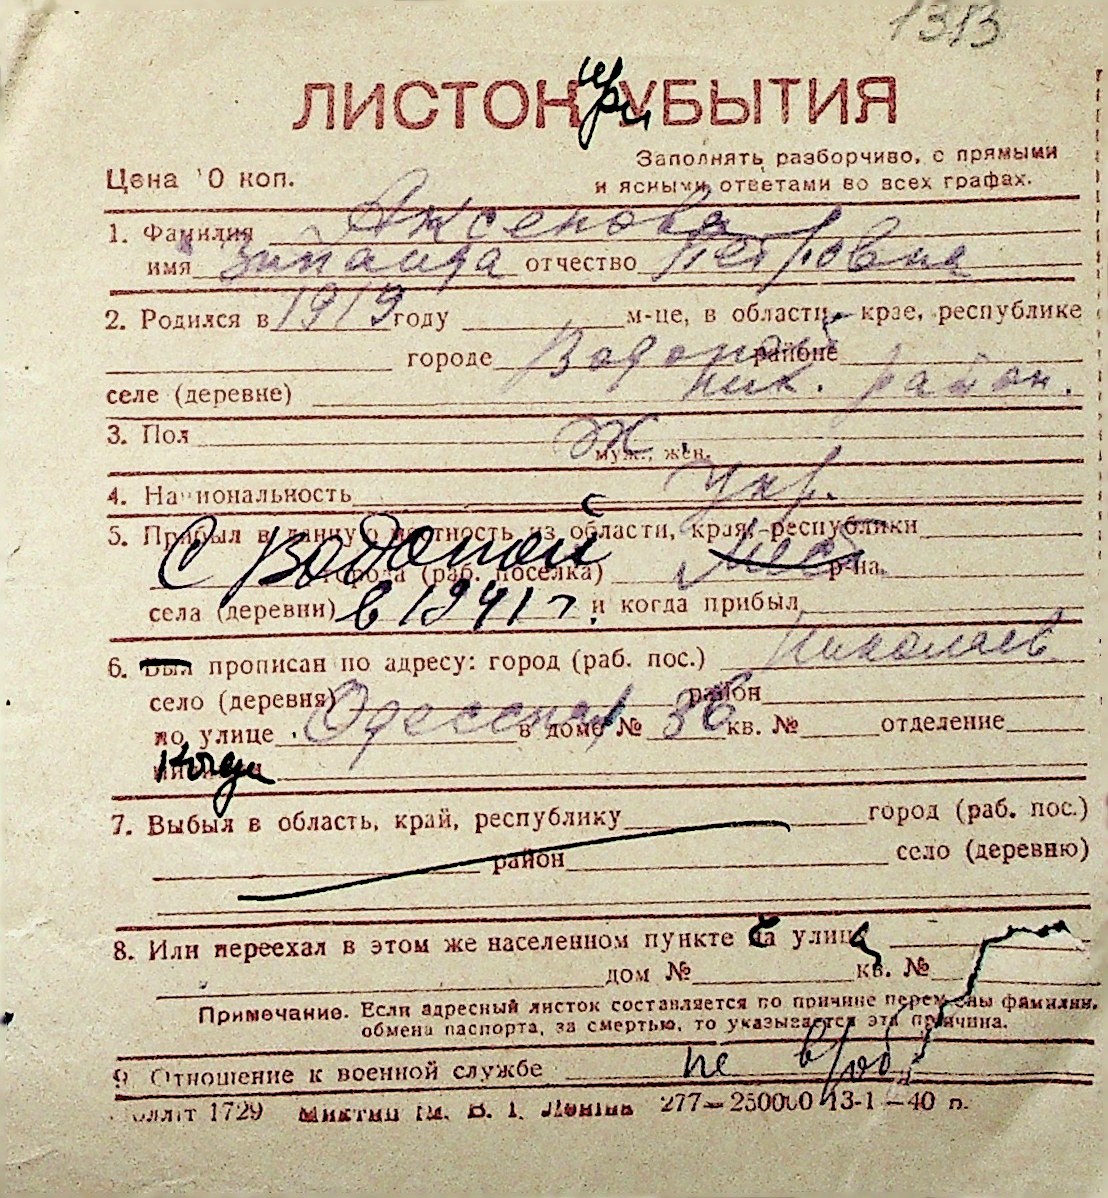 1313
ЛИСТОК при УБЫТИЯ
Цена 10 коп.
Заполнять разборчиво, с прямыми
и ясными ответами во всех графах.
1. Фамилия Аксенова
имя Зинаида отчество Петровна
2. Родился в 1919 году м-це, в области, крае, республике
городе Водопой районе
селе (деревне) ник. район.
3. Пол Ж.
муж., жен.
4. Национальность Укр.
5. Прибыл в данную местность из области, края, республики
с Водопой города (раб. поселка) р-на
села (деревни) в 1941 г. и когда прибыл
6. Был прописан по адресу: город (раб. пос.) Николаев
село (деревня) район
по улице Одесская в доме № 36 кв. № отделение
Когда
7. Выбыл в область, край, республику город (раб. пос.)
район село (деревню)
8. Или переехал в этом же населенном пункте с улица
дом № кв. №
Примечание. Если адресный листок составляется по причине перемены фамилии,
обмена паспорта, за смертью, то указывается эта причина.
9. Отношение к военной службе не в/об
Обллiт 1729 ім. В. І. Леніна 277—250000 13-1—40 п.